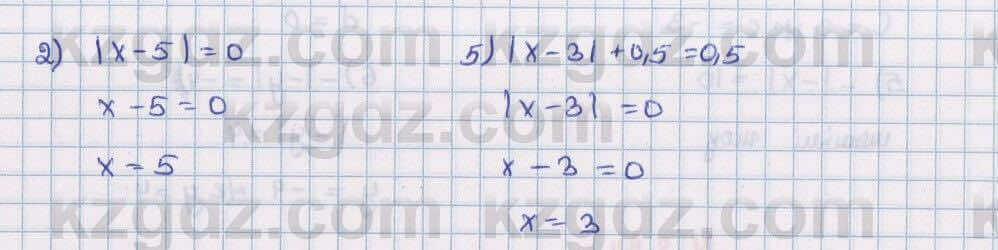 2) |x - 5| = 0
x - 5 = 0
x = 5
5) |x - 3| + 0,5 = 0,5
|x - 3| = 0
x - 3 = 0
x = 3
kzgdz.com
kzgdz.com
kzgdz.com
kzgdz.com